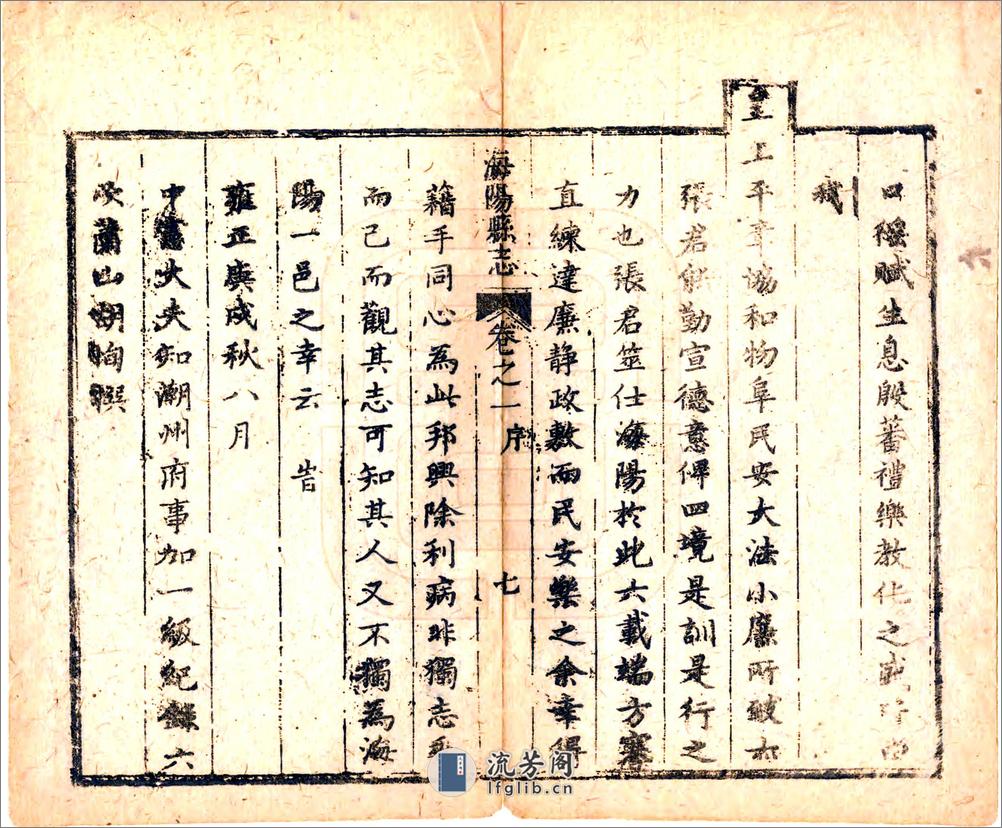 口徭賦生息殷蕃禮樂教化之盛
我
皇上平章協和物阜民安大法小廉所致亦
張君能勤宣德意俾四境是訓是行之
力也張君筮仕海陽於此六載端方審
直練達廉静政敷而民安樂之余幸得
海陽縣志 卷之一 序 七
藉手同心為此邦興除利病非獨志乘
而已而觀其志可知其人又不獨為海
陽一邑之幸云 旹
雍正庚戌秋八月
中憲大夫知潮州府事加一級紀錄六
次蕭山胡恂撰
流芳阁
lfglib.cn